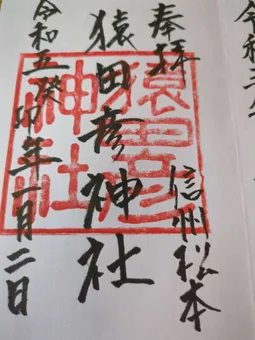 奉拝
信州松本
猿田彦神社
猿田彦神社
令和五癸卯年一月二日
令和